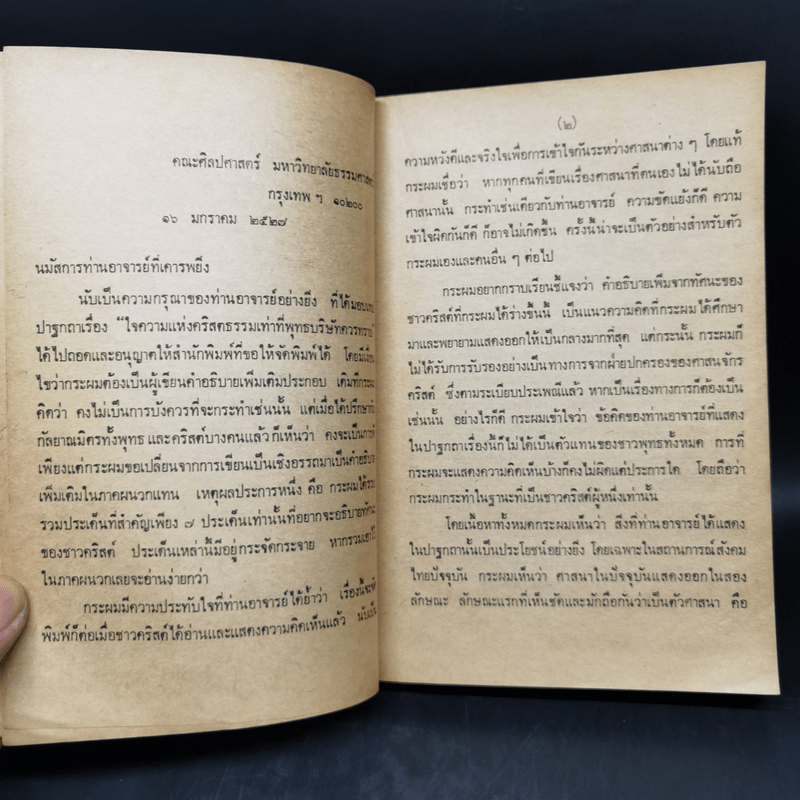 คณะศิลปศาสตร์ มหาวิทยาลัยธรรมศาสตร์
กรุงเทพ ฯ ๑๐๒๐๐
๑๖ มกราคม ๒๕๒๗
นมัสการท่านอาจารย์ที่เคารพยิ่ง
นับเป็นความกรุณาของท่านอาจารย์อย่างยิ่ง ที่ได้มอบ
ปาฐกถาเรื่อง “ใจความแห่งคริสตธรรมเท่าที่พุทธบริษัทควรทราบ”
ได้ไปถอดและอนุญาตให้สำนักพิมพ์ที่ขอให้จัดพิมพ์ได้ โดยมี
ไขว่ากระผมต้องเป็นผู้เขียนคำอธิบายเพิ่มเติมประกอบ เดิมที่กระผม
คิดว่า คงไม่เป็นการบังควรที่จะกระทำเช่นนั้น แต่เมื่อได้ปรึกษา
กัลยาณมิตรทั้งพุทธ และคริสต์บางคนแล้ว ก็เห็นว่า คงจะเป็นการ
เพียงแต่กระผมขอเปลี่ยนจากการเขียนเป็นเชิงอรรถมาเป็นคำอธิบาย
เพิ่มเติมในภาคผนวกแทน เหตุผลประการหนึ่ง คือ กระผมได้
รวมประเด็นที่สำคัญเพียง ๗ ประเด็นเท่านั้นที่อยากจะอธิบาย
ของชาวคริสต์ ประเด็นเหล่านี้มีอยู่กระจัดกระจาย หากรวม
ในภาคผนวกเลยจะอ่านง่ายกว่า
กระผมมีความประทับใจที่ท่านอาจารย์ได้ย้ำว่า เรื่องนี้จะ
พิมพ์ก็ต่อเมื่อชาวคริสต์ได้อ่านและแสดงความคิดเห็นแล้ว นับเป็น
(๒)
ความหวังดีและจริงใจเพื่อการเข้าใจกันระหว่างศาสนาต่าง ๆ โดยแท้
กระผมเชื่อว่า หากทุกคนที่เขียนเรื่องศาสนาที่ตนเองไม่ได้นับถือ
ศาสนานั้น กระทำเช่นเดียวกับท่านอาจารย์ ความขัดแย้งก็ดี ความ
เข้าใจผิดกันก็ดี ก็อาจไม่เกิดขึ้น ครั้งนี้น่าจะเป็นตัวอย่างสำหรับตัว
กระผมเองและคนอื่น ๆ ต่อไป
กระผมอยากกราบเรียนชี้แจงว่า คำอธิบายเพิ่มจากทัศนะของ
ชาวคริสต์ที่กระผมได้ร่างขึ้นนี้ เป็นแนวความคิดที่กระผมได้ศึกษา
มาและพยายามแสดงออกให้เป็นกลางมากที่สุด แต่กระนั้น กระผมก็
ไม่ได้รับการรับรองอย่างเป็นทางการจากฝ่ายปกครองของศาสนจักร
คริสต์ ซึ่งตามระเบียบประเพณีแล้ว หากเป็นเรื่องทางการก็ต้องเป็น
เช่นนั้น อย่างไรก็ดี กระผมเข้าใจว่า ข้อคิดของท่านอาจารย์ที่แสดง
ในปาฐกถาเรื่องนี้ก็ไม่ได้เป็นตัวแทนของชาวพุทธทั้งหมด การที่
กระผมจะแสดงความคิดเห็นบ้างก็คงไม่ผิดแต่ประการใด โดยถือว่า
กระผมกระทำในฐานะที่เป็นชาวคริสต์ผู้หนึ่งเท่านั้น
โดยเนื้อหาทั้งหมดกระผมเห็นว่า สิ่งที่ท่านอาจารย์ได้แสดง
ในปาฐกถานั้นเป็นประโยชน์อย่างยิ่ง โดยเฉพาะในสถานการณ์สังคม
ไทยปัจจุบัน กระผมเห็นว่า ศาสนาในปัจจุบันแสดงออกในสอง
ลักษณะ ลักษณะแรกที่เห็นชัดและมักถือกันว่าเป็นตัวศาสนา คือ